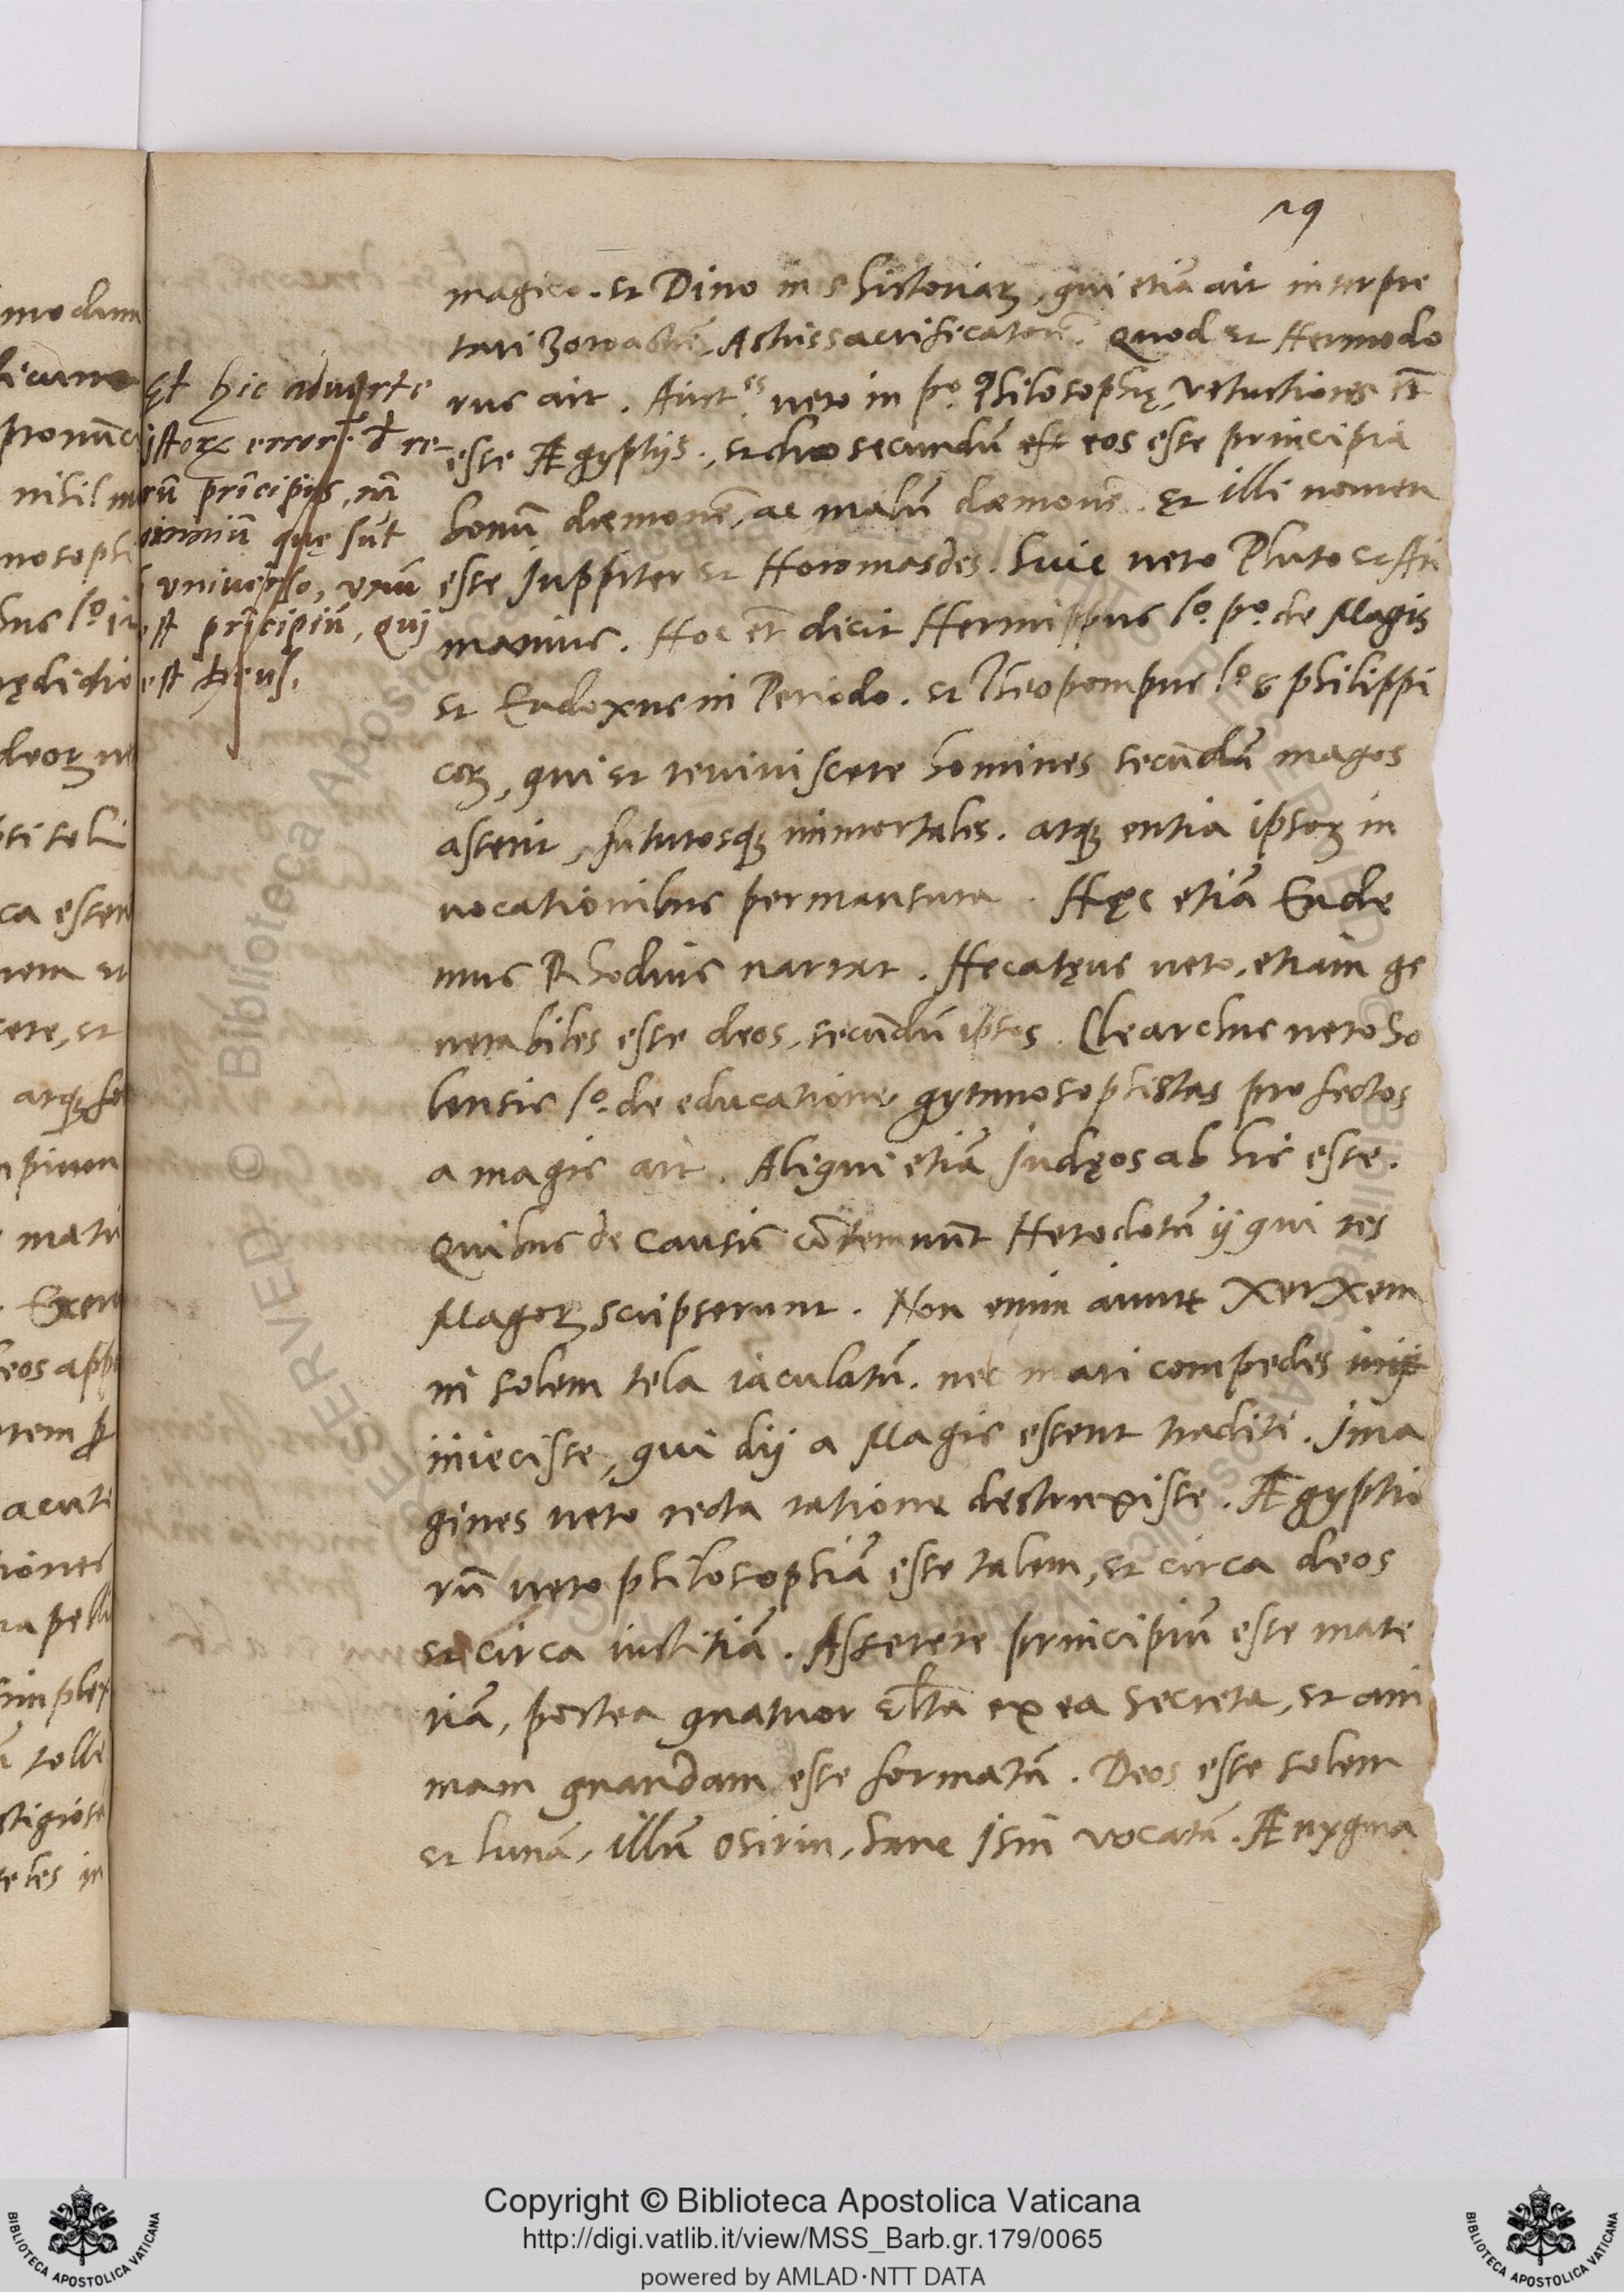 29
magico. et Dino in 5 historiaꝝ, qui etiā ait interpre
tari Zoroastrē, Astrissacrificatorē. Quod et Hermodo
rus ait. Arist.es vero in p.º Philosophię, vetustiores et̄
esse Ægyptijs., et duo secundū eos esse principia
bonū dæmonē, ac malū dæmonē. et illi nomen
esse Juppiter et Horomasdes. huic vero Pluto et Ari
manius. Hoc et̄ dicit Hermippus l.º p.º de Magis
et Eudoxus in Periodo. et Theopompus l.º 8 philippi
coꝝ, qui et reviviscere homines secundū magos
asserit, futurosqꝫ immortales. atqꝫ entia ipsoꝝ in
vocationibus permansura. Hęc etiā Eude
mus Rhodius narrat. Hecatęus vero, etiam ge
nerabiles esse deos, secundū ipsos. Clearchus vero So
lensis l.º de educatione gymnosophistas profectos
a magis ait. Aliqui etiā Judęos ab his esse.
Quibus de causis cōtemnunt Herodotū ij qui res
Magoꝝ scripserunt. Non enim aiunt Xerxem
in solem tela iaculatū. nec mari compedes
iniecisse, qui dij a Magis essent traditi. Ima
gines vero recta ratione destruxisse. Ægyptio
rū vero philosophiā esse talem, et circa deos
et circa iustitiā. Asserere principiū esse mate
riā, postea quatuor elt̄a ex ea secreta, et ani
mam quandam esse formatā. Deos esse solem
et lunā, illū Osirin, hanc Isin vocatā. Ænygma
Et hic adverte
istoꝝ errorē d̄ re-
rū prīcipijs, nā
omniū quę sūt
ī universo, unū
est prīcipiū, qui
est Deus.
Copyright © Biblioteca Apostolica Vaticana
http://digi.vatlib.it/view/MSS_Barb.gr.179/0065
powered by AMLAD·NTT DATA
BIBLIOTECA APOSTOLICA VATICANA
BIBLIOTECA APOSTOLICA VATICANA